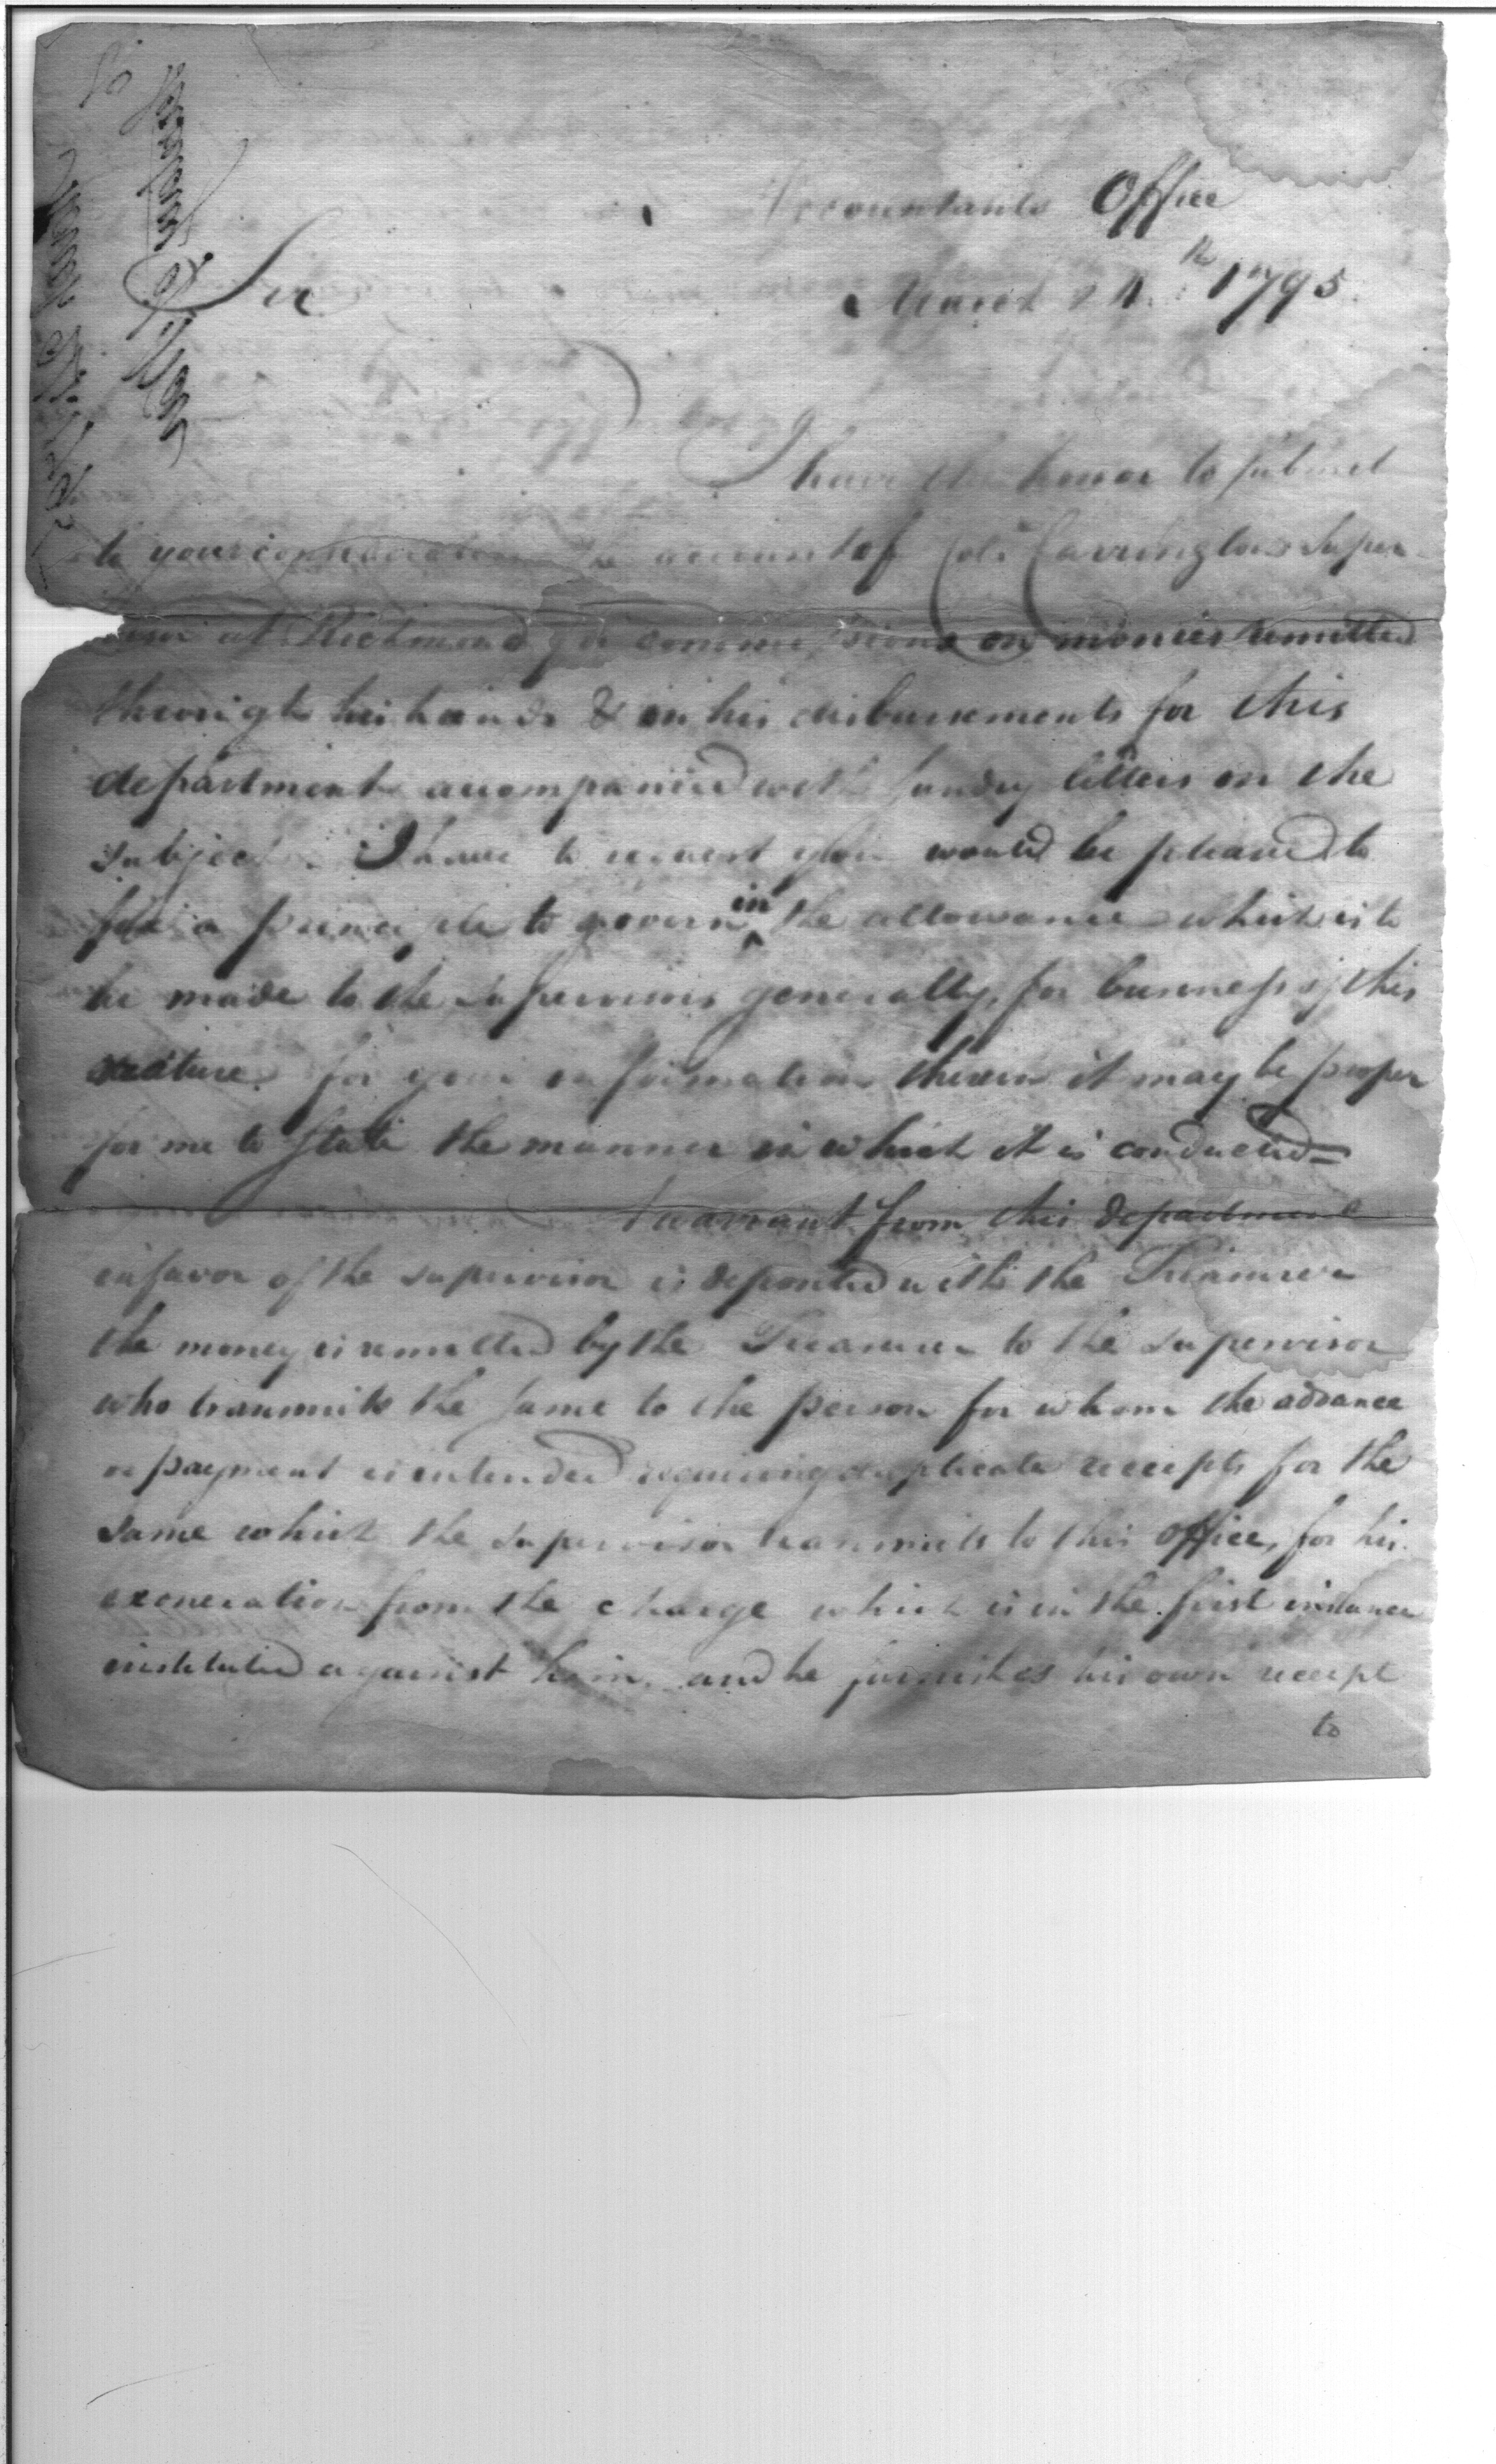 Accountants Office
March 1795.
Sir
I have the honor to submit
to your consideration the account of Colo. Carrington Super-
visor at Richmond for commissions on monies remitted
through his hands & on his disbursements for this
department accompanied with sundry letters on the
subject. I have to request you would be pleased to
fix a principle to govern in the allowance which is to
be made to the supervisors generally, for business of this
nature. for your information therein it may be proper
for me to state the manner in which it is conducted=
A warrant from this department
in favor of the supervisor is deposited with the Treasurer
the money is remitted by the Treasurer to the supervisor
who transmits the same to the person for whom the advance
or payment is intended requiring duplicate receipts for the
same which the supervisor transmits to this office, for his
exoneration from the charge which is in the first instance
instituted against him, and he furnishes his own receipt
to